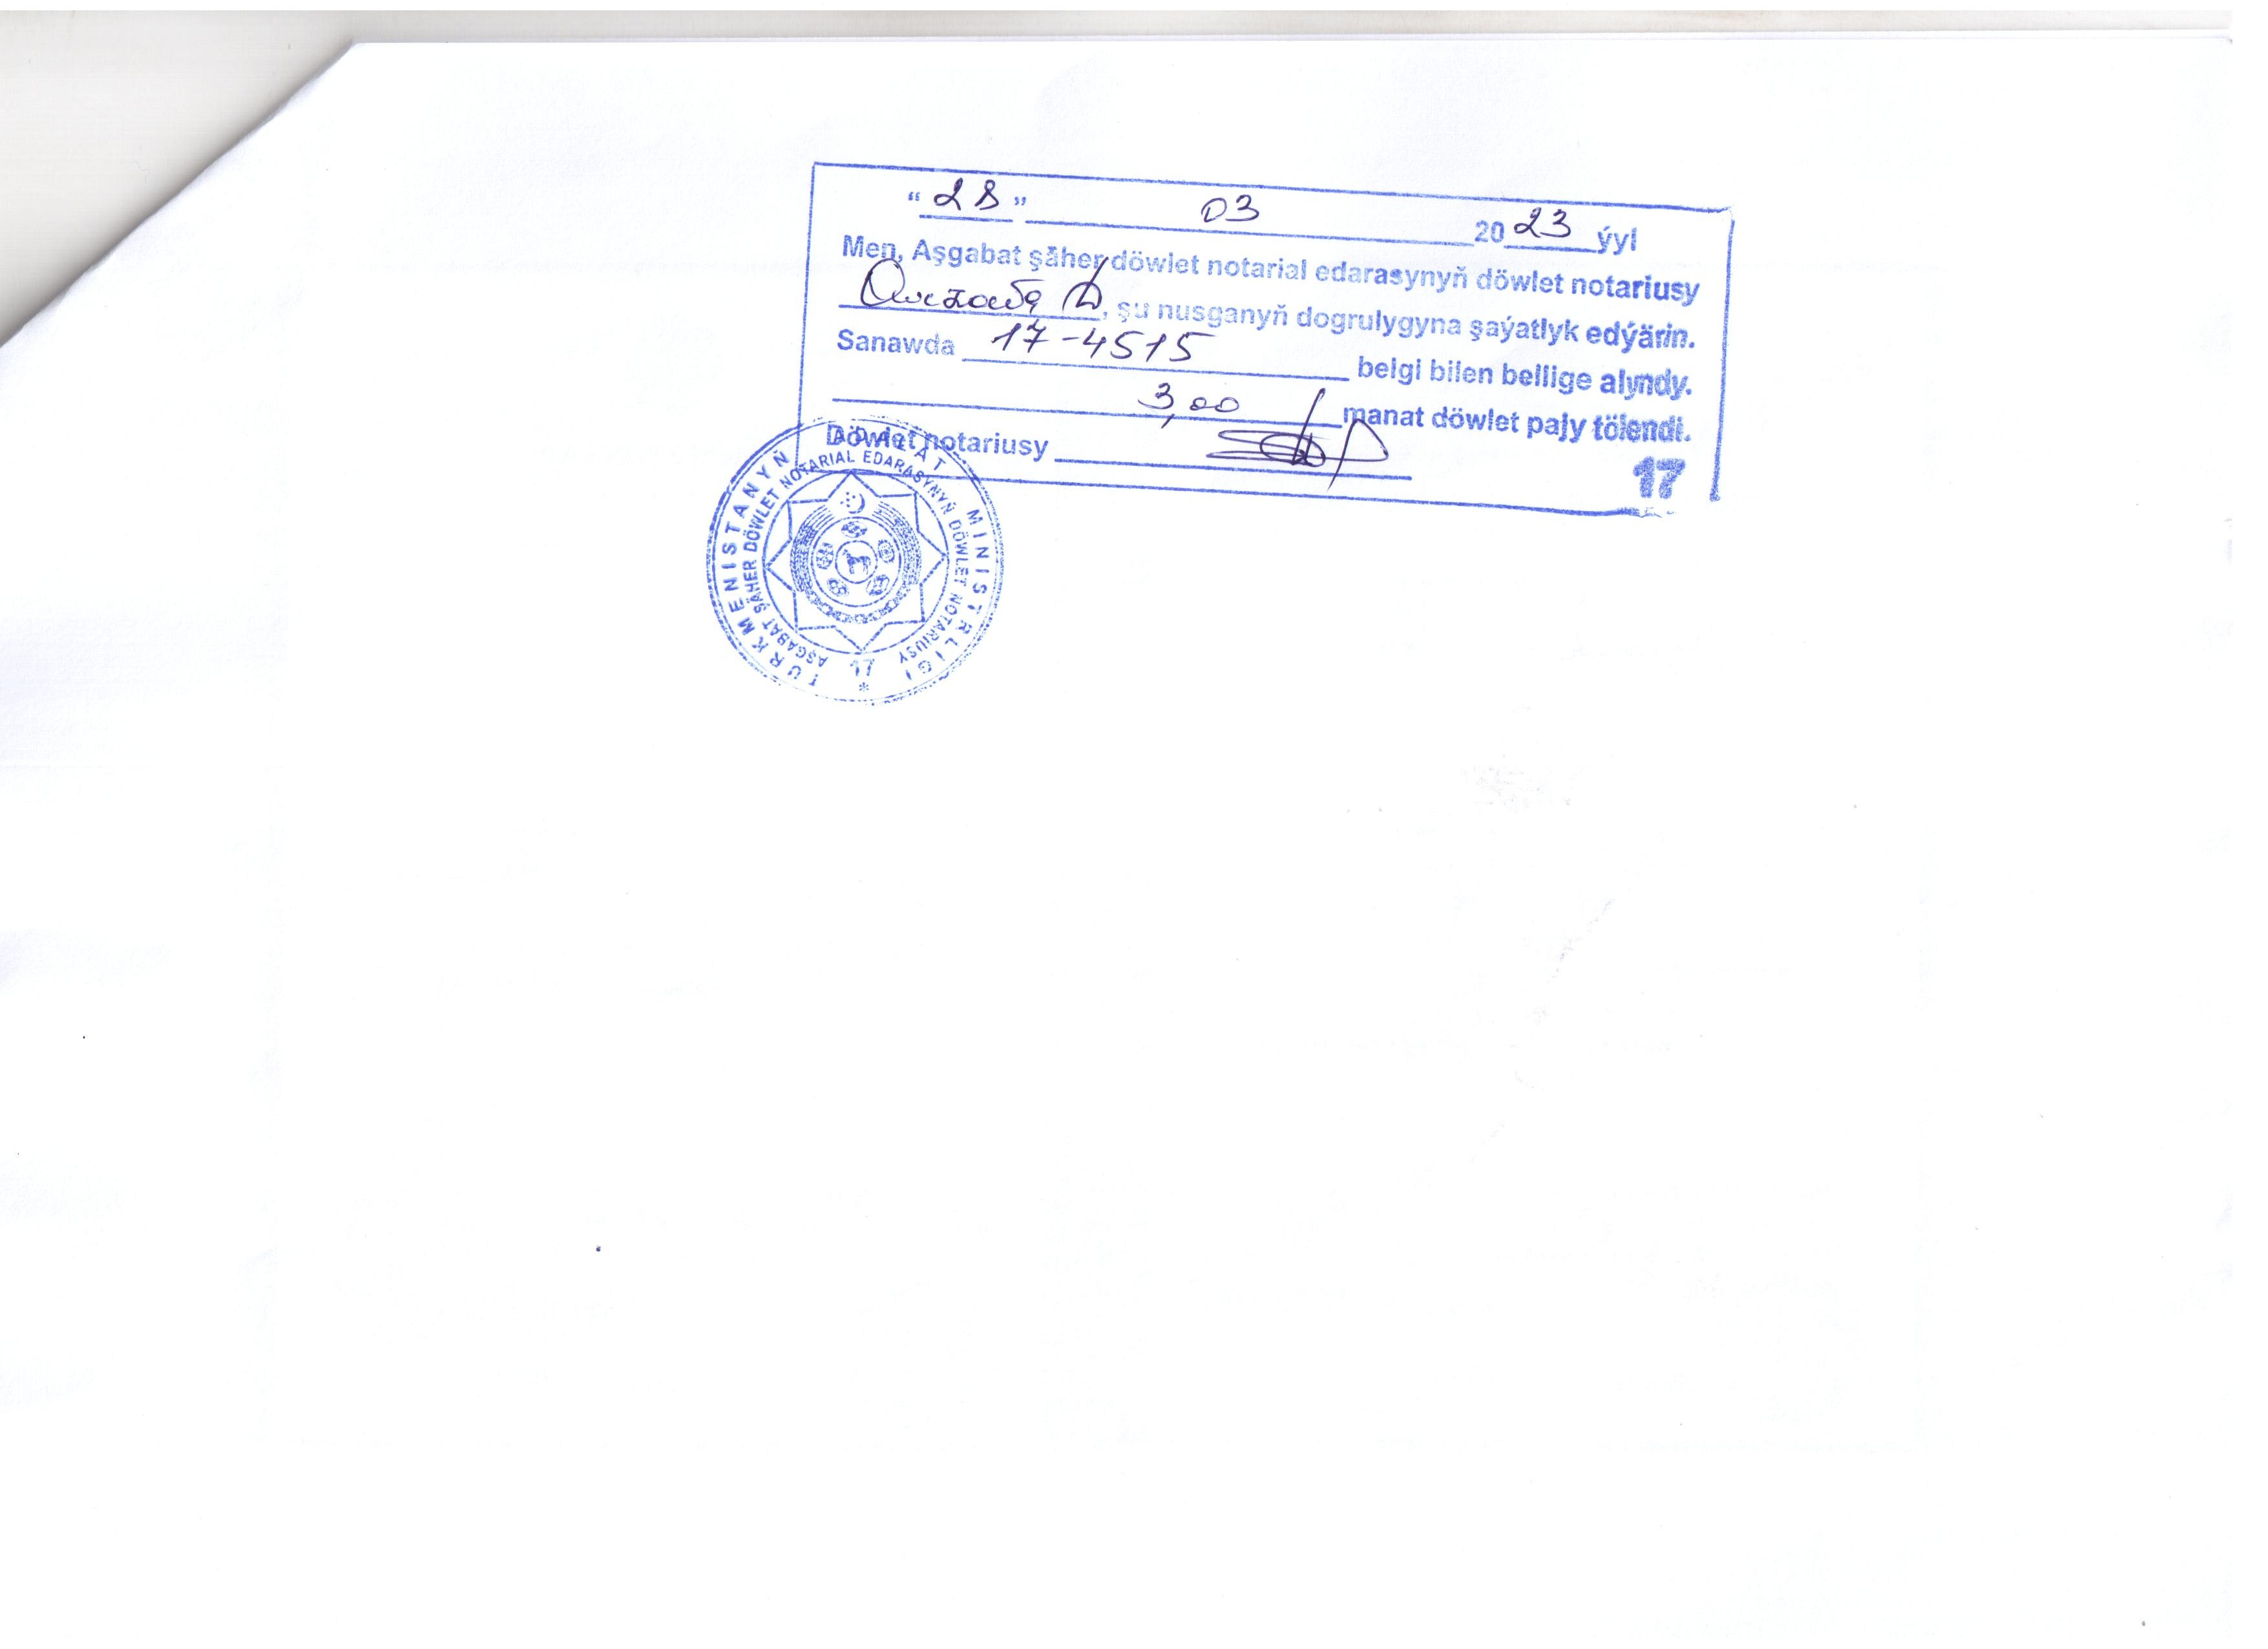 “ 28 ” 03 2023 ýyl
Men, Aşgabat şäher döwlet notarial edarasynyň döwlet notariusy
, şu nusganyň dogrulygyna şaýatlyk edýärin.
Sanawda 17-4515 belgi bilen bellige alyndy.
3,00 manat döwlet paJy tölendi.
Döwlet notariusy
17
TÜRKMENISTANYŇ ADALAT MINISTRLIGI
AŞGABAT ŞÄHER DÖWLET NOTARIAL EDARASYNYŇ DÖWLET NOTARIUSY
17
*